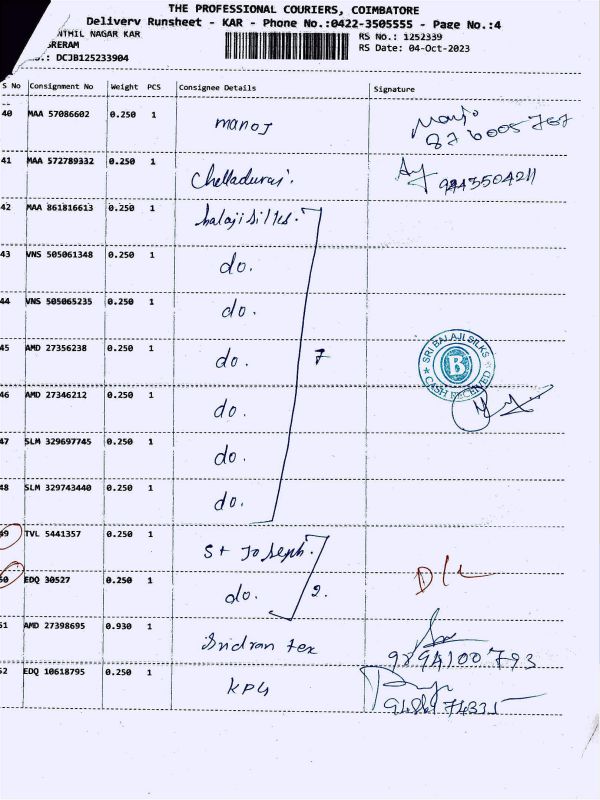 THE PROFESSIONAL COURIERS, COIMBATORE
Delivery Runsheet - KAR - Phone No.:0422-3505555 - Page No.:4
NTHIL NAGAR KAR
RS No.: 1252339
GRERAM
RS Date: 04-Oct-2023
.: DCJB125233904
S No Consignment No Weight PCS Consignee Details Signature
40 MAA 57086602 0.250 1 manoj Manjo
876005767
41 MAA 572789332 0.250 1 Chelladurai.
9843504211
42 MAA 861816613 0.250 1 balaji silks.
43 VNS 505061348 0.250 1 do.
44 VNS 505065235 0.250 1 do.
45 AMD 27356238 0.250 1 do. 7
SRI BALAJI SILKS
B
CASH RECEIVED
46 AMD 27346212 0.250 1 do.
47 SLM 329697745 0.250 1 do.
48 SLM 329743440 0.250 1 do.
49 TVL 5441357 0.250 1 St Joseph.
50 EDQ 30527 0.250 1 do. 2. D/L
51 AMD 27398695 0.930 1 Indran tex
9894100793
52 EDQ 10618795 0.250 1 KPG